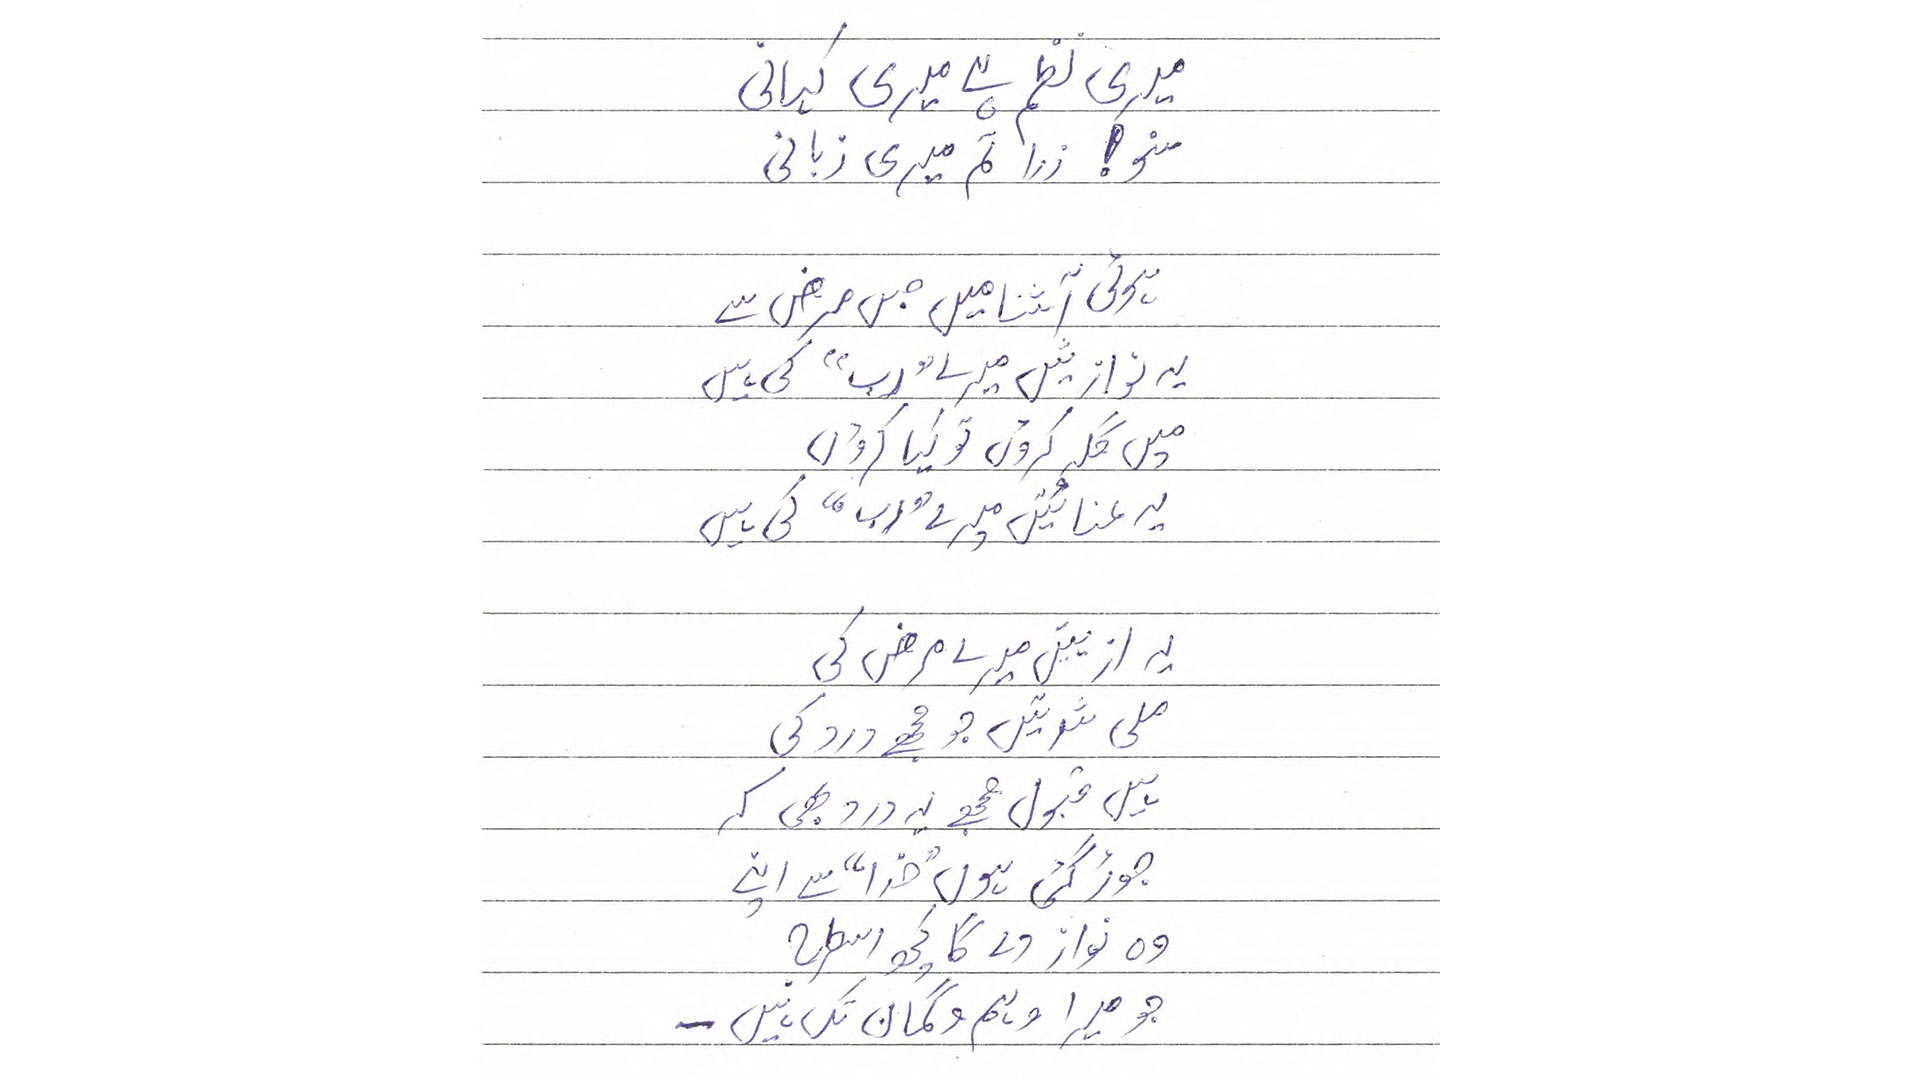 میری نظم ہے میری کہانی
سنو! زرا تم میری زبانی
ہوئی آشنا میں جس مرض سے
یہ نوازیشیں میرے "رب" کی ہیں
میں گلہ کروں تو کیا کروں
یہ عنائیتیں میرے "رب" کی ہیں
یہ ازیتیں میرے مرض کی
ملی شدیتیں جو مجھے درد کی
ہیں قبول مجھے یہ درد بھی کہ
جوڑ گئی ہوں "خدا" سے اپنے
وہ نواز دے گا کچھ اسطرح
جو میرا وہم و گمان تک نہیں ۔